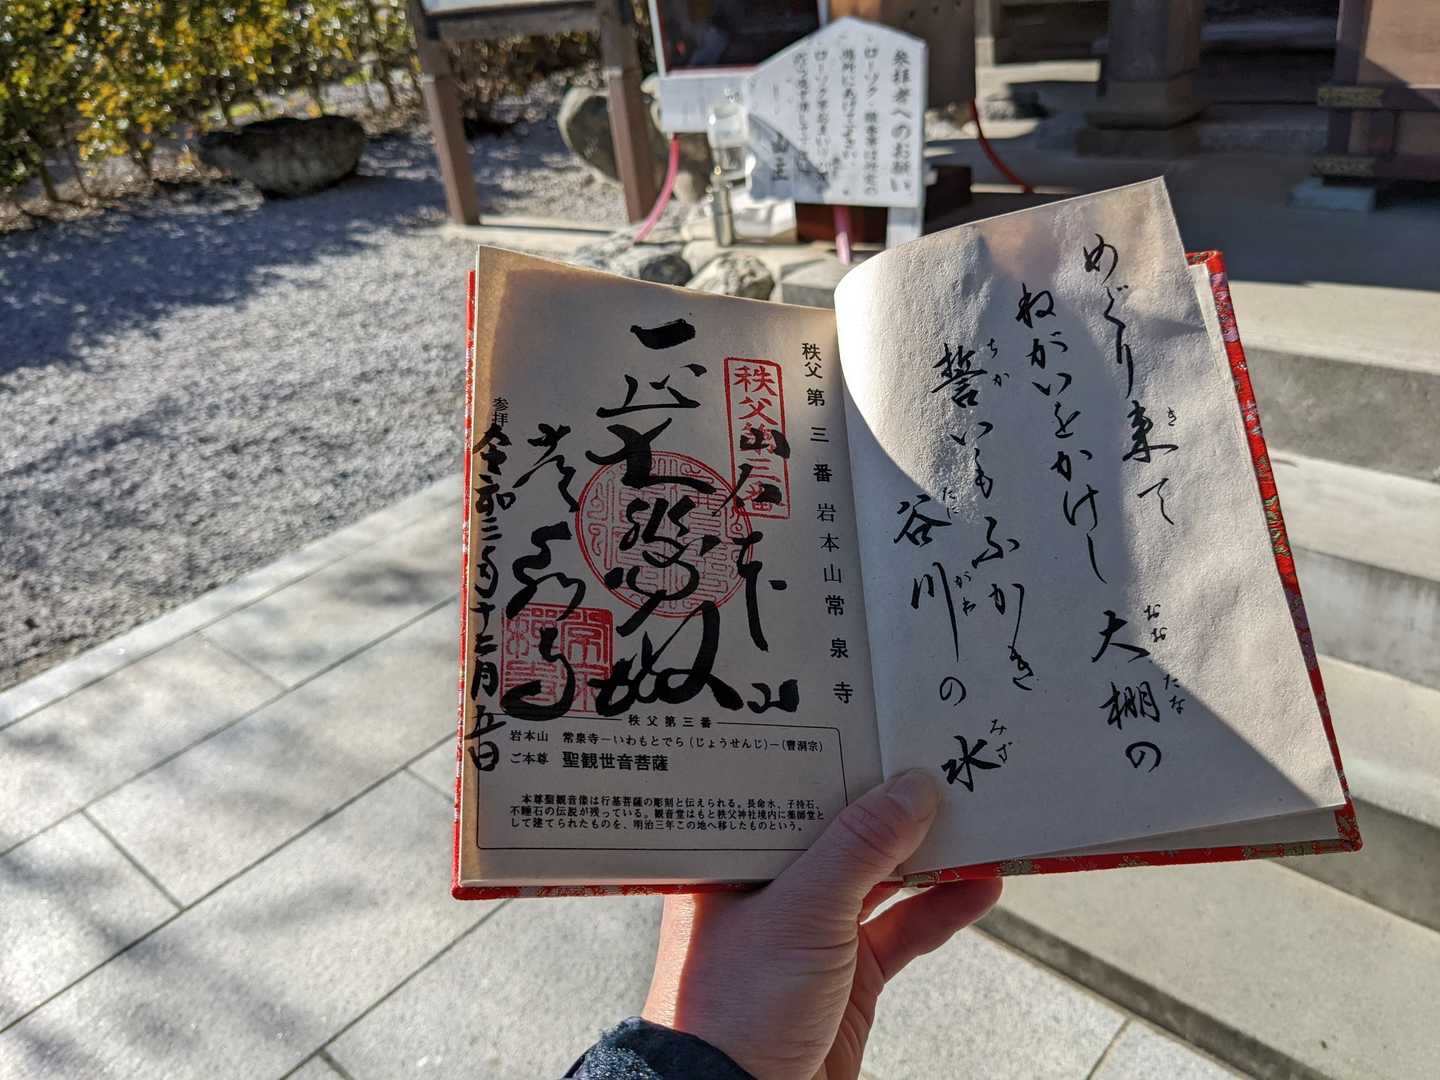 参拝者へのお願い
ローソク・線香は所定の
場所にあげて下さい
山主
めぐり来て
ねがいをかけし
大棚の
誓いもふかき
谷川の水
き
おおだな
ちか
たにがわ
みず
秩父第三番岩本山常泉寺
秩父第三番
岩本山
常泉寺
参拝
令和三年十二月五日
秩父第三番
岩本山 常泉寺―いわもとでら(じょうせんじ)―(曹洞宗)
ご本尊 聖観世音菩薩
本尊聖観音像は行基菩薩の彫刻と伝えられる。長命水、子持石、
不睡石の伝説が残っている。観音堂はもと秩父神社境内に薬師堂と
して建てられたものを、明治三年この地へ移したものという。